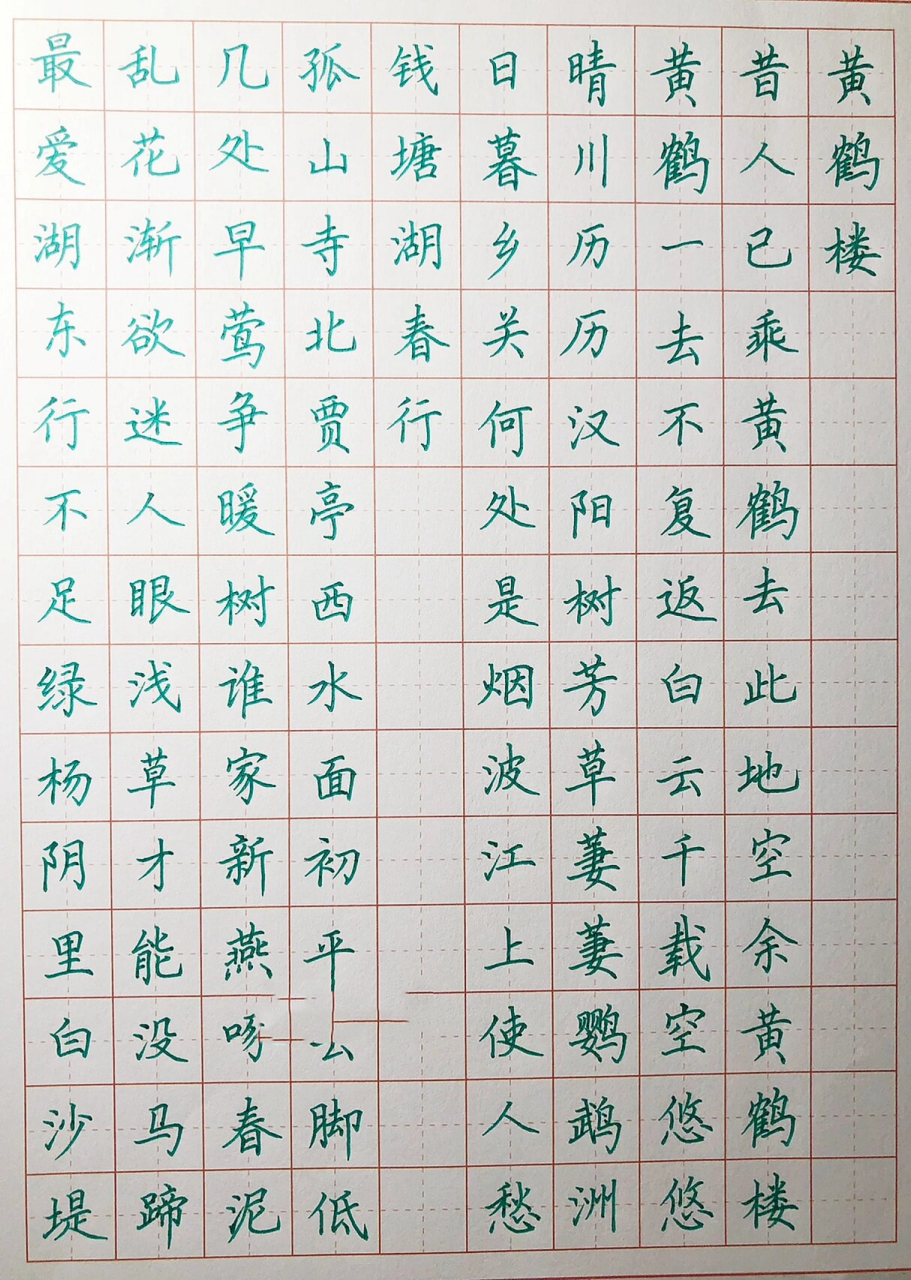 黄鹤楼
昔人已乘黄鹤去此地空余黄鹤楼
黄鹤一去不复返白云千载空悠悠
晴川历历汉阳树芳草萋萋鹦鹉洲
日暮乡关何处是烟波江上使人愁
钱塘湖春行
孤山寺北贾亭西水面初平云脚低
几处早莺争暖树谁家新燕啄春泥
乱花渐欲迷人眼浅草才能没马蹄
最爱湖东行不足绿杨阴里白沙堤